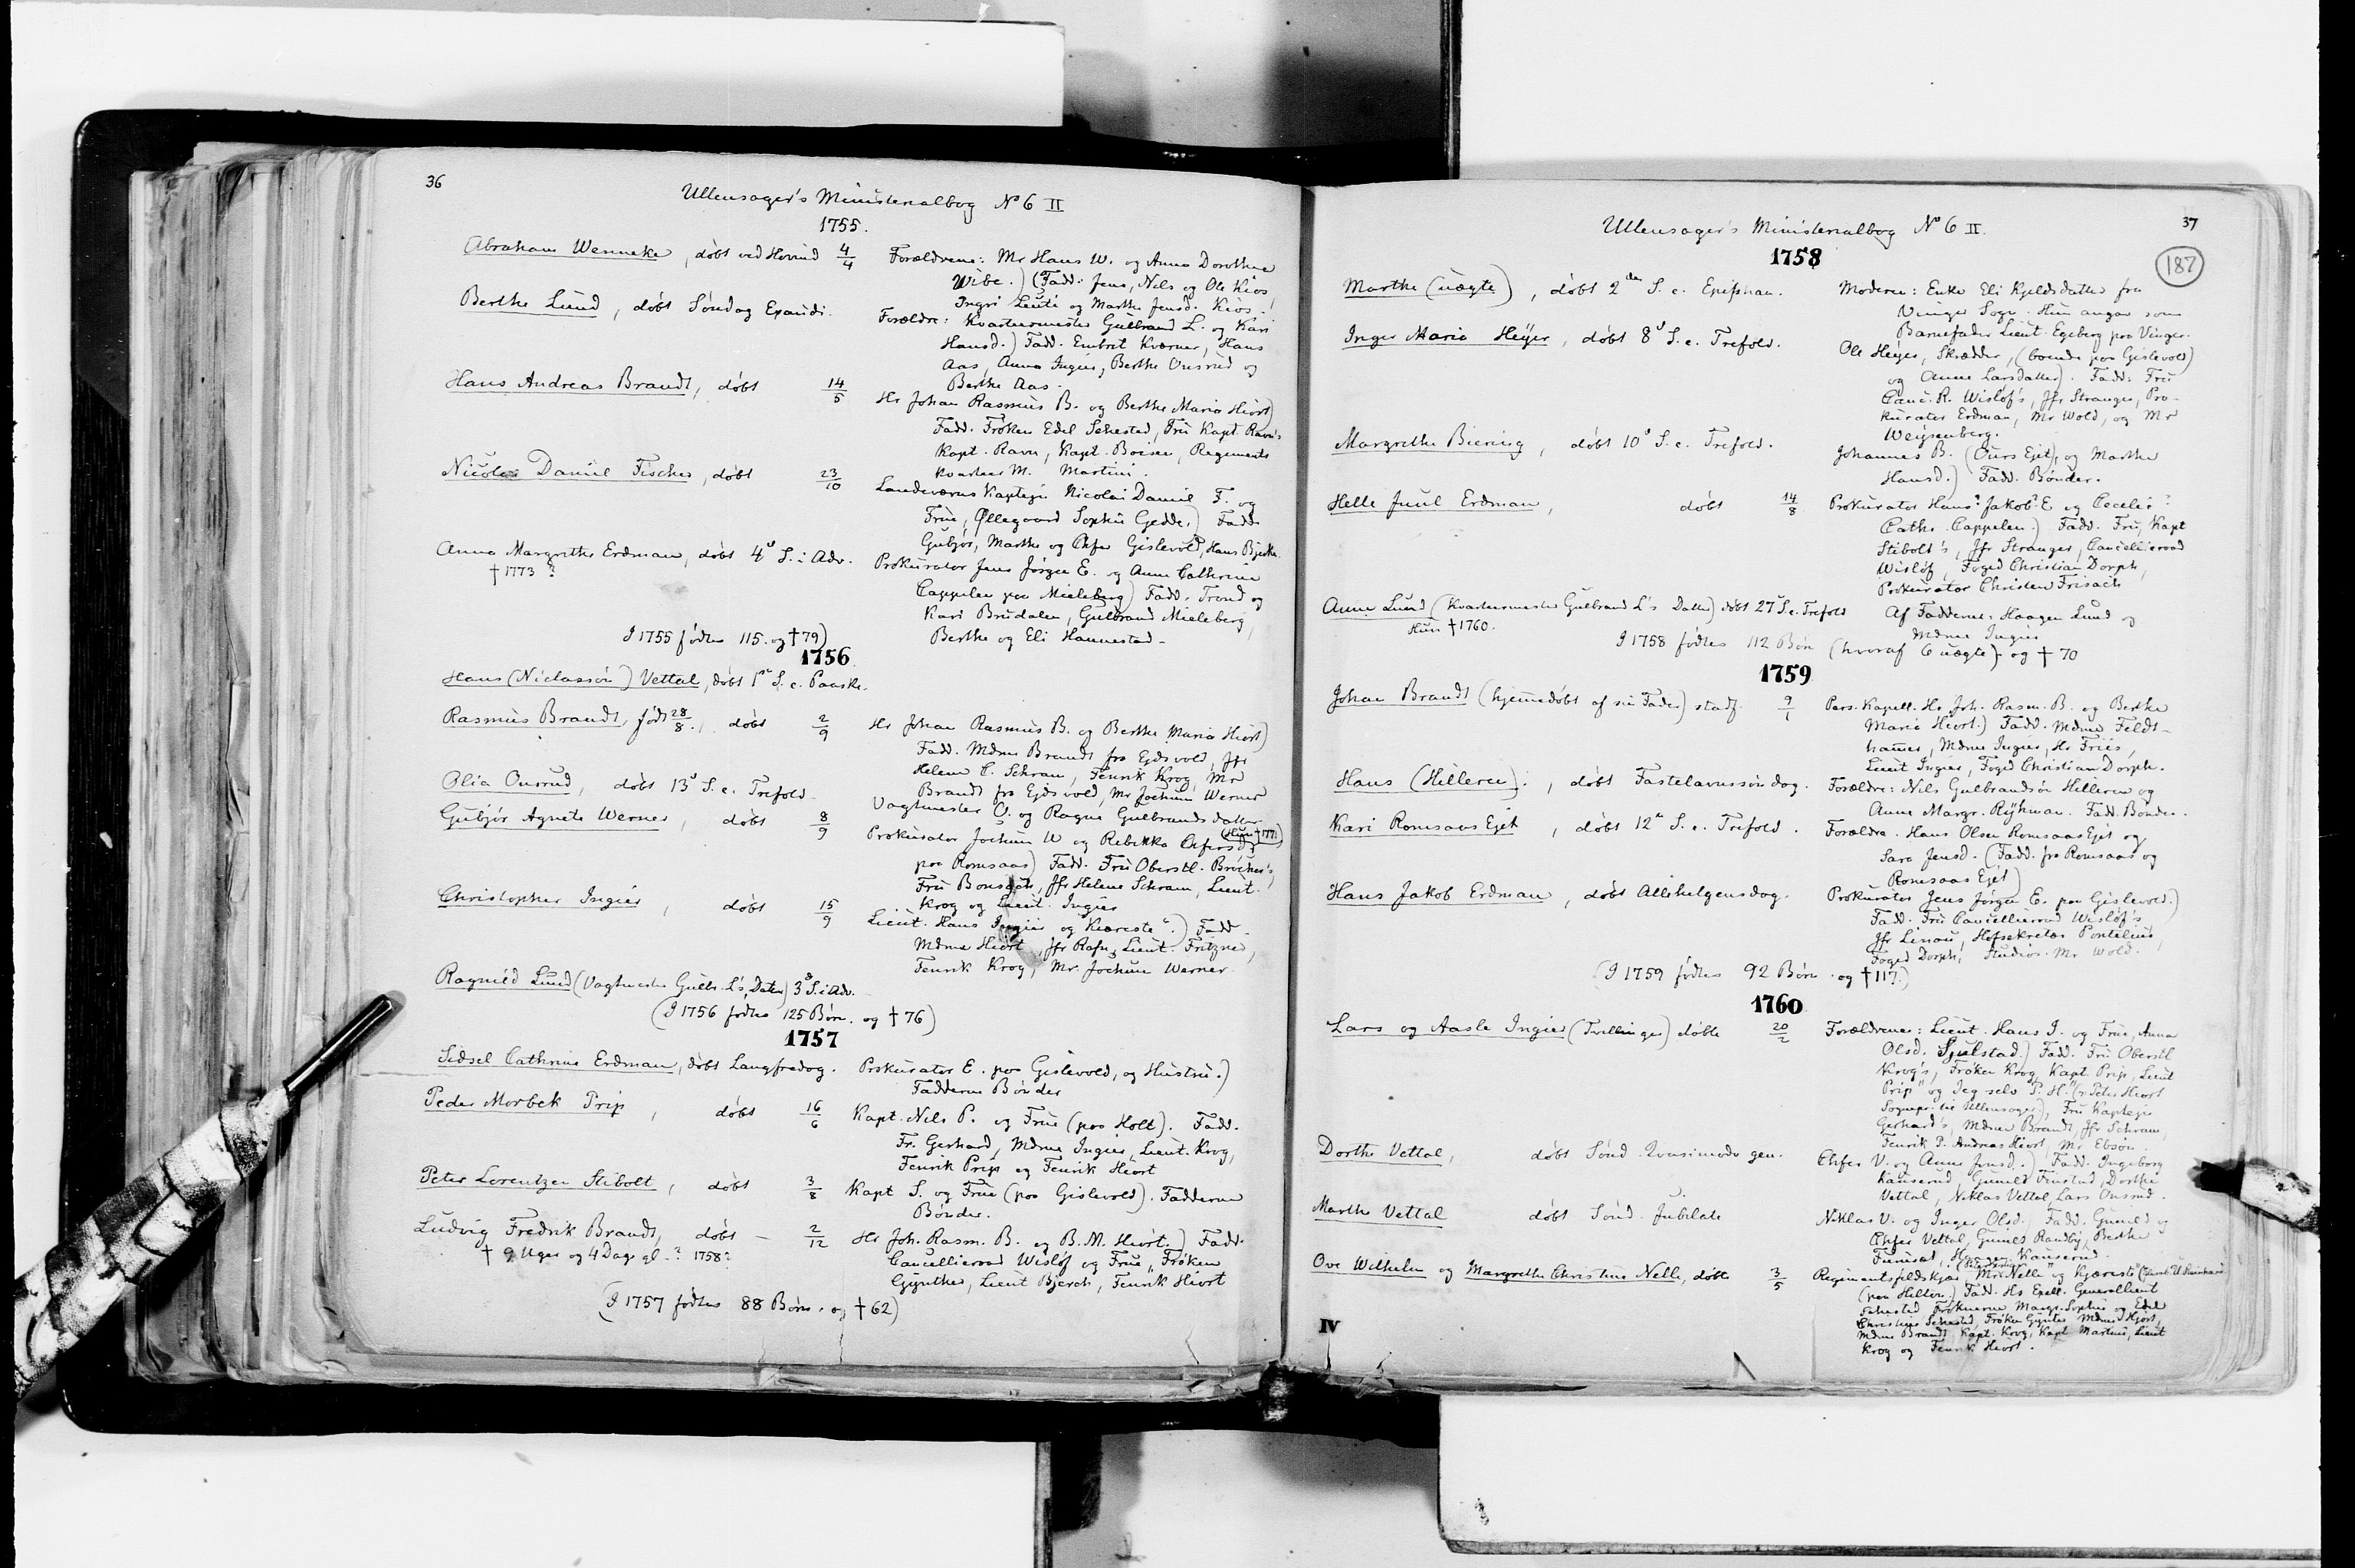 36
Ullensager's Ministerialbog No 6 II
1755.
Abraham Wenneke, døbt ved Hovind 4/4
Forældrene: Mr Hans W. og Anna Dorothea
Wibe.) (Fadd: Jens, Nils og Ole Kios,
Ingri Leuti og Marthe Jensd. Kios.
Berthe Lund, døbt Søndag Exaudi.
Forældre: Kvartermester Gulbrand L. og Kari
Hansd.) Fadd. Embret Kværner, Hans
Aas, Anna Ingier, Berthe Onsrud og
Berthe Aas.
Hans Andreas Brandt, døbt 14/5
Hr Johan Rasmus B. og Berthe Maria Hiort)
Fadd. Frøken Edel Sehested, Fru Kapt. Ravn's
Kapt. Ravn, Kapt. Boisen, Regiments
kvarteer M. Martini.
Nicolai Daniel Fischer, døbt 23/10
Landeværns Kaptejn Nicolai Daniel F. og
Frue, Øllegaard Sophie Gedde.) Fadd.
Gubjør, Marthe og Chfer Gislevold, Hans Bjerke.
Anna Margrethe Erdman, døbt 4d S. i Adv.
† 1773?
Prokurator Jens Jørgen E. og Anne Cathrine
Cappelen paa Mieleberg) Fadd. Trond og
Kari Brudalen, Gulbrand Mieleberg,
Berthe og Eli Hannestad.
I 1755 fødtes 115. og † 79)
1756
Hans (Niclassøn) Vettal, døbt 1ste S. e. Paaske.
Rasmus Brandt, født 28/8., døbt 2/9
Hr Johan Rasmus B. og Berthe Maria Hiort)
Fadd. Mdme Brandt fra Ejdsvold, Jfr
Helene C. Schram, Fenrik Krog, Mr
Brandt fra Ejdsvold, Mr Jochum Werner
Olia Onsrud, døbt 13d S. e. Trefold.
Vagtmester O. og Ragne Gulbrandsdatter
Gubjør Agnete Werner, døbt 8/9
(Hun † 1771)
Prokurator Jochum W og Rebekka Chfersd.
paa Romsaas) Fadd. Fru Oberstl. Brochers,
Fru Bonsach, Jfr Helene Schram, Lieut.
Krog og Lieut. Ingier
Christopher Ingier, døbt 15/9
Lieut. Hans Ingier og "Kiæreste".) Fadd.
Mdme Hiort, Jfr Rafn, Lieut. Fritzner,
Fenrik Krog, Mr. Jochum Werner.
Ragnild Lund (Vagtmester Gulbr. L's Datter) 3d S. i Adv.
(I 1756 fødtes 125 Børn. og † 76)
1757
Sidsel Cathrine Erdman, døbt Langfredag.
Prokurator E. paa Gislevold, og Hustru.)
Fadderne Bønder
Peder Morbek Prip, døbt 16/6
Kapt. Nils P. og Frue (paa Holt). Fadd.
Fr. Gerhard, Mdme Ingier, Lieut. Krog,
Fenrik Prip og Fenrik Hiort
Peter Lorentzen Stibolt, døbt 3/8
Kapt S. og Frue (paa Gislevold). Fadderne
Bønder.
Ludvig Fredrik Brandt, døbt 2/12
† 9 Uger og 4 Dage gl. ? 1758?
Hr Joh. Rasm. B. og B. M. Hiort.) Fadd.
Cancellieraad Wisløf og Frue, Frøken
Gynther, Lieut Bjerch, Fenrik Hiort
(I 1757 fødtes 88 Børn. og † 62)
37
Ullensager's Ministerialbog No 6 II.
187
1758
Marthe (uægte), døbt 2den S. e. Epiphan.
Moderen: Enke Eli Kjeldsdatter fra
Vinger Sogn. Hun angav som
Barnefader Lieut. Egeberg paa Vinger.
Inger Maria Heyer, døbt 8d S. e. Trefold.
Ole Heyer, Skrædder, (boende paa Gislevold)
og Anne Larsdatter). Fadd: Fru
Canc. R. Wisløf's, Jfr Stranger, Pro-
kurator Erdman, Mr Wold, og Mr
Weysenberg.
Margrethe Biering, døbt 10d S. e. Trefold.
Johannes B. (Ours Ejet) og Marthe
Hansd.) Fadd. Bønder.
Helle Juul Erdman, døbt 14/8
Prokurator Hans? Jakob? E og Cecelie?
Cathr. Cappelen.) Fadd. Fru, Kapt
Stibolt's, Jfr Stranger, Cancellieraad
Wisløf, Foged Christian Dorph,
Prokurator Christen Frisach
Anne Lund (Kvartermester Gulbrand L's Datter) døbt 27d S. e. Trefold
Hun † 1760.
Af Fadderne: Haagen Lund og
Mdme Ingier
I 1758 fødtes 112 Børn (hvoraf 6 uægte) og † 70
1759
Johan Brandt (hjemmedøbt af sin Fader) stadf. 9/1
Pers. Kapell. Hr Joh. Rasm. B. og Berthe
Maria Hiort.) Fadd. Mdme Feldt-
hames, Mdme Ingier, Hr Friis,
Lieut Ingier, Foged Christian Dorph.
Hans (Hilleren), døbt Fastelavnssøndag.
Forældre: Nils Gulbrandsøn Hilleren og
Anne Margr. Ryhman. Fadd. Bønder.
Kari Romsaas Ejet, døbt 12te S. e. Trefold.
Forældre. Hans Olsen Romsaas Ejet og
Sara Jensd. (Fadd. fra Romsaas og
Romsaas Ejet)
Hans Jakob Erdman, døbt Allehelgensdag.
Prokurator Jens Jørgen E. paa Gislevold.)
Fadd. Fru Cancellieraad Wisløf's,
Jfr Linou, Hofsekretær Pontelius,
Foged Dorph, Studios. Mr Wold.
(I 1759 fødtes 92 Børn. og † 117.)
1760
Lars og Aasle Ingier (Tvillinger) døbte 20/2
Forældrene: Lieut. Hans I. og Frue, Anna
Olsd. Sjulstad.) Fadd. Fru Oberstl
Krog's, Frøken Krog, Kapt. Prip, Lieut
Prip" og Jeg selv P. H." (: Peter Hiort
Sognepr. til Ullensager), Fru Kaptejn
Gerhard's, Mdme Brandt, Jfr Schram,
Fenrik P. Andreas Hiort, Mr Ebsøn.
Dorthe Vettal, døbt Sønd. Quasimodo gen.
Chfer V. og Anne Jensd.) Fadd. Ingeborg
Kauserud, Gunild Finstad, Dorthe
Vettal, Niklas Vettal, Lars Onsrud.
Marthe Vettal døbt Sønd. Jubilate
Niklas V. og Inger Olsd. Fadd. Gunild og
Chfer Vettal, Gunild Randby, Berthe
Furuset, Haagen Kauserud.
Ove Wilhelm og Margrethe Christine Nelle, døbte 3/5
Regimentsfeldskjær Mr "Nelle" og Kjæreste"
(paa Hilton.) Fadd. Hr. Exell. Generallieut
Sehested Frøknerne Margr. Sophie og Edel
Christine Sehested, Frøken Gynter Mdme Hjort,
Mdme Brandt, Kapt. Krog, Kapt Martini, Lieut
Krog og Fenrik Hiort.
IV